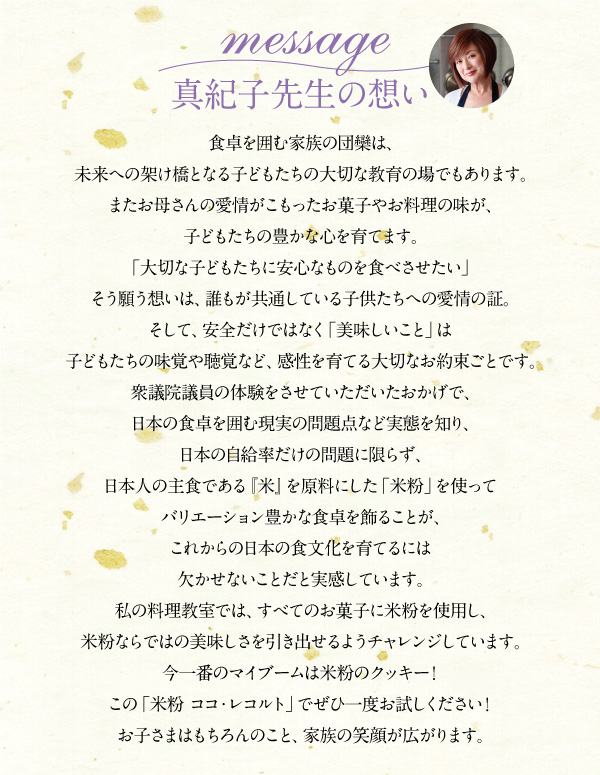 message
真紀子先生の想い
食卓を囲む家族の団欒は、
未来への架け橋となる子どもたちの大切な教育の場でもあります。
またお母さんの愛情がこもったお菓子やお料理の味が、
子どもたちの豊かな心を育てます。
「大切な子どもたちに安心なものを食べさせたい」
そう願う想いは、誰もが共通している子供たちへの愛情の証。
そして、安全だけではなく「美味しいこと」は
子どもたちの味覚や聴覚など、感性を育てる大切なお約束ごとです。
衆議院議員の体験をさせていただいたおかげで、
日本の食卓を囲む現実の問題点など実態を知り、
日本の自給率だけの問題に限らず、
日本人の主食である『米』を原料にした「米粉」を使って
バリエーション豊かな食卓を飾ることが、
これからの日本の食文化を育てるには
欠かせないことだと実感しています。
私の料理教室では、すべてのお菓子に米粉を使用し、
米粉ならではの美味しさを引き出せるようチャレンジしています。
今一番のマイブームは米粉のクッキー!
この「米粉 ココ・レコルト」でぜひ一度お試しください!
お子さまはもちろんのこと、家族の笑顔が広がります。